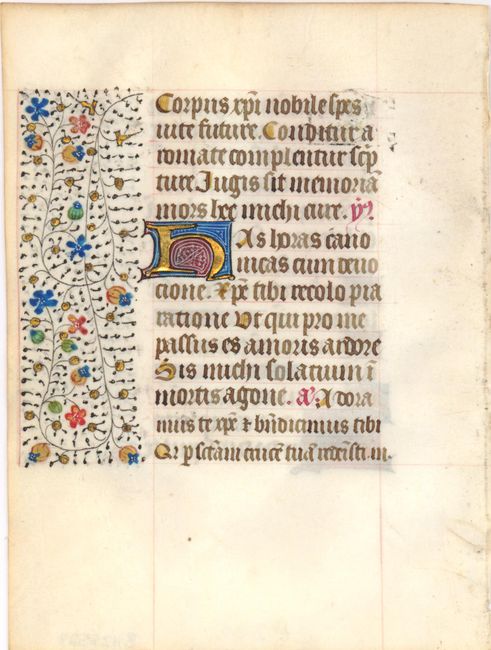 Corpus xpi nobile spes
vite future. Conditur a
romate complentur scrip
ture Jugis sit memoria
mors hec michi cure. ỹ
Has horas cano
nicas cum deuo
cione. Xpe tibi recolo pia
ratione Ut qui pro me
passus es amoris ardore
Sis michi solatium ī
mortis agone. añ Adora
mus te xpe & bn̄dicimus tibi
Qr̄ p sctam̄ crucē tuā redemisti m.